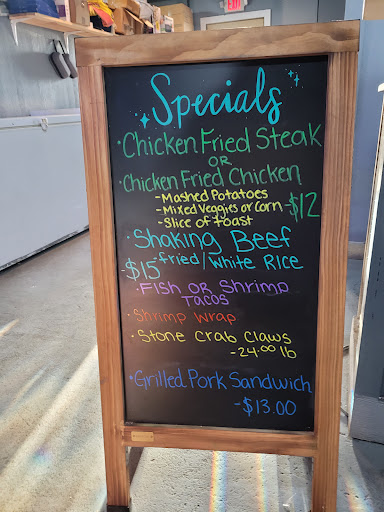 EXIT
Specials
· Chicken Fried Steak
OR
· Chicken Fried Chicken
- Mashed Potatoes
- Mixed Veggies or Corn - $12
- Slice of toast
· Shaking Beef
- $15 - fried / White Rice
· Fish OR Shrimp
Tacos
· Shrimp Wrap
· Stone Crab Claws
- 24.00 lb
· Grilled Pork Sandwich
- $13.00